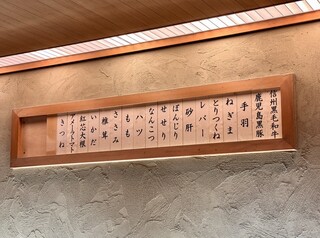 信州黒毛和牛
鹿児島黒豚
手羽
ねぎま
とりつくね
レバー
砂肝
ぼんじり
せせり
なんこつ
ハツ
もも
ささみ
椎茸
いかだ
紅芯大根
アメーラトマト
きつね